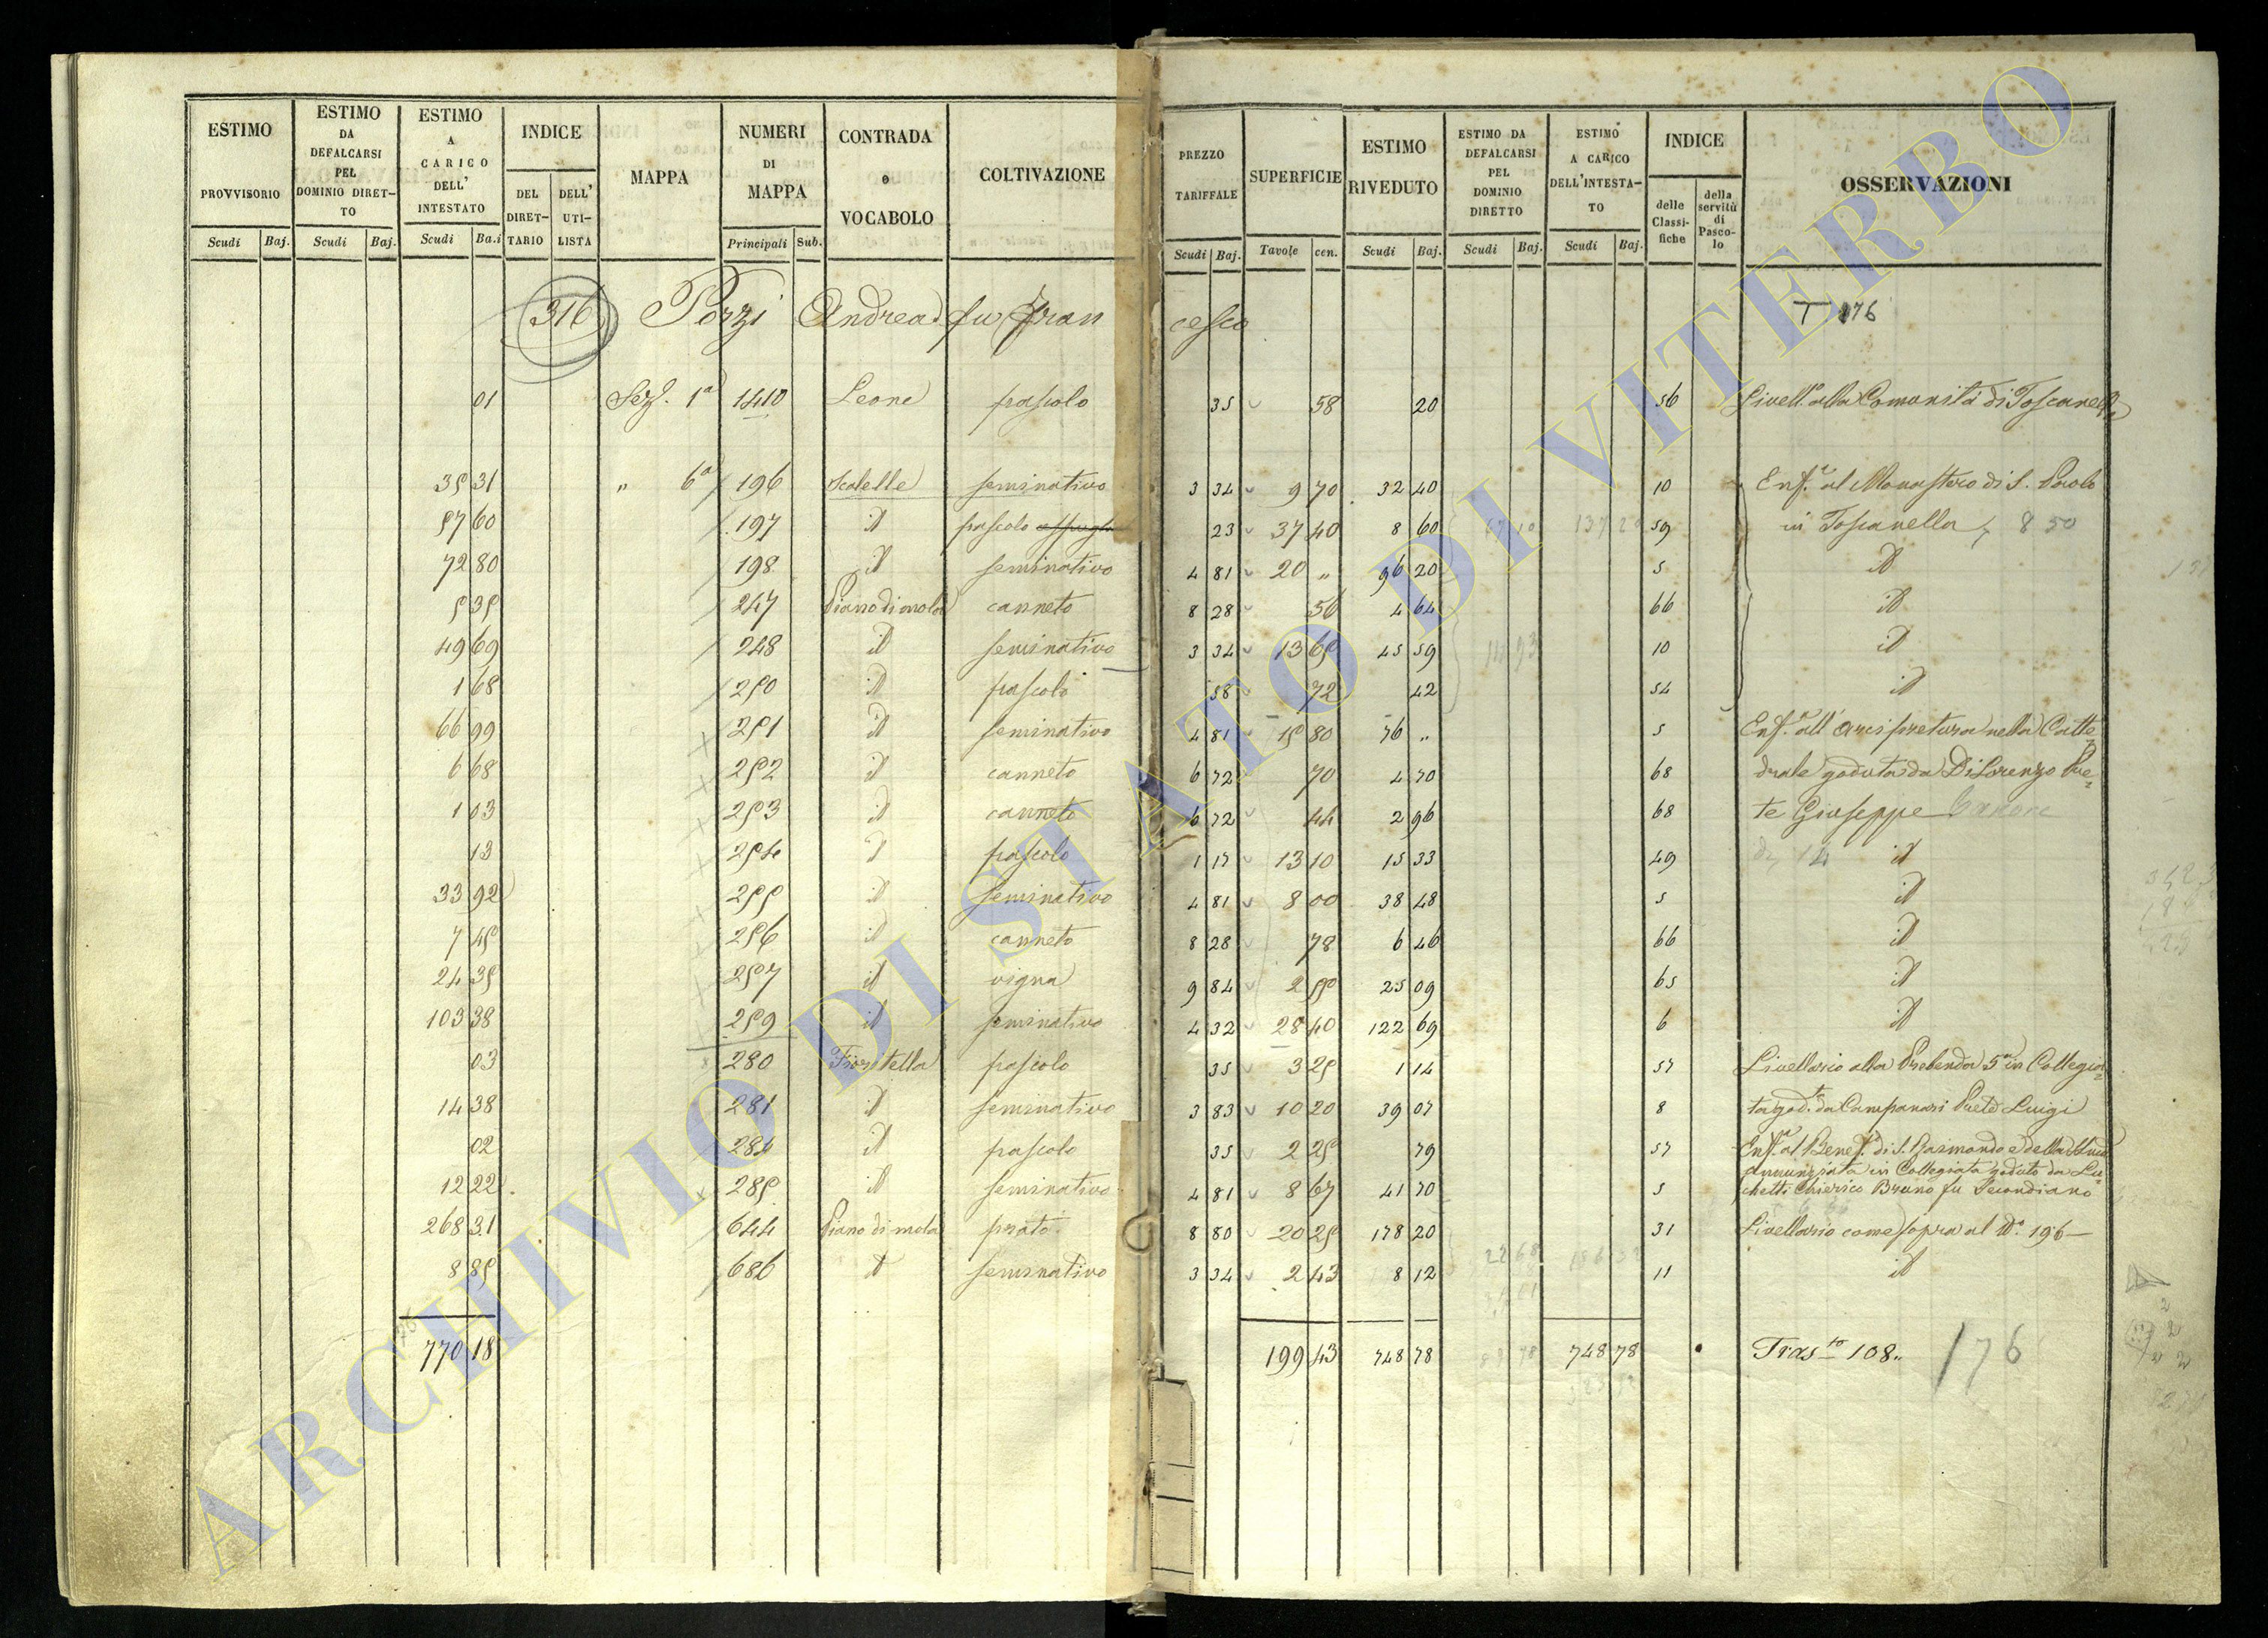 ESTIMO PROVVISORIO Scudi Baj. | ESTIMO DA DEFALCARSI PEL DOMINIO DIRETTO Scudi Baj. | ESTIMO A CARICO DELL' INTESTATO Scudi Ba.i | INDICE DEL DIRETTARIO DELL' UTILISTA | MAPPA | NUMERI DI MAPPA Principali Sub. | CONTRADA o VOCABOLO | COLTIVAZIONE | PREZZO TARIFFALE Scudi Baj. | SUPERFICIE Tavole cen. | ESTIMO RIVEDUTO Scudi Baj. | ESTIMO DA DEFALCARSI PEL DOMINIO DIRETTO Scudi Baj. | ESTIMO A CARICO DELL'INTESTATO Scudi Baj. | INDICE delle Classifiche della servitù di Pascolo | OSSERVAZIONI
316 Pozzi Andrea fu Francesco T 176
01 Sez. 1a 1410 Leone pascolo 35 58 20 56 Livell. alla Comunità di Toscanella
35 31 " 6a 196 Scalelle seminativo 3 34 9 70 32 40 10 Enf. al Monastero di S. Paolo
57 60 197 id pascolo 23 37 40 8 60 59 in Toscanella 8 50
72 80 198 id seminativo 4 81 20 " 96 20 5 id
5 35 247 Piano di mola canneto 8 28 56 4 64 66 id
49 69 248 id seminativo 3 34 13 65 45 59 10 id
1 68 250 id pascolo 58 72 42 54 id
66 99 251 id seminativo 4 81 15 80 76 " 5 Enf. all'arcipretura nella Catte=
6 68 252 id canneto 6 72 70 4 70 68 drale goduta da Di Lorenzo Pre=
1 03 253 id canneto 6 72 44 2 96 68 te Giuseppe
13 254 id pascolo 1 17 13 10 15 33 49 id
33 92 255 id seminativo 4 81 8 00 38 48 5 id
7 45 256 id canneto 8 28 78 6 46 66 id
24 35 257 id vigna 9 84 2 55 25 09 65 id
103 38 259 id seminativo 4 32 28 40 122 69 6 id
03 280 pascolo 35 3 25 1 14 57 Livellario alla Prebenda 5a in Collegia=
14 38 281 id seminativo 3 83 10 20 39 07 8 ta god. da Campanari Prete Luigi
02 284 id pascolo 35 2 25 79 57 Enf. al Benef. di S. Raimondo e della
Annunziata in Collegiata goduto da Lu=
12 22 285 id seminativo 4 81 8 67 41 70 5 chetti Chierico Bruno fu Secondiano
268 31 644 Piano di mola prato 8 80 20 25 178 20 31 Livellario come sopra al No. 196
8 85 686 id seminativo 3 34 2 43 8 12 11 id
770 18 199 43 748 78 748 78 Tras.to 108 176
ARCHIVIO DI STATO DI VITERBO